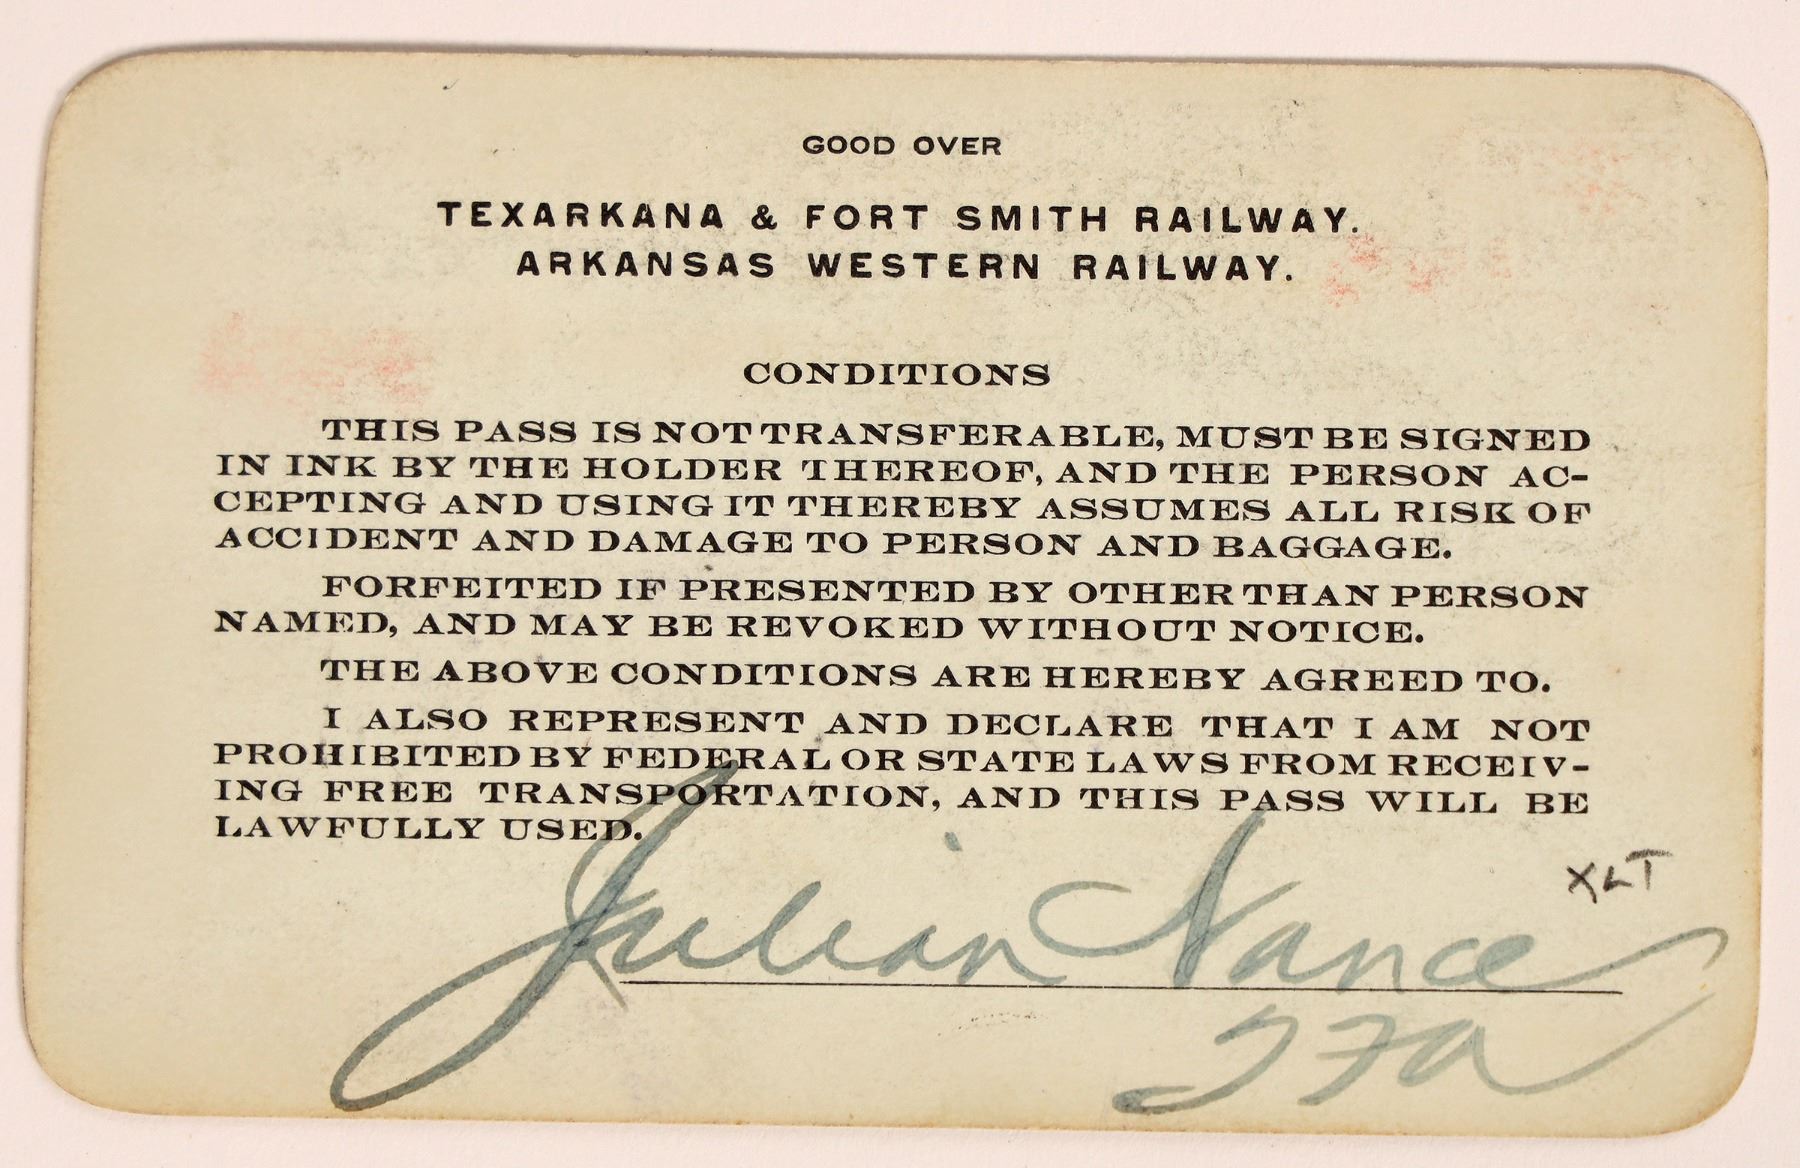 GOOD OVER
TEXARKANA & FORT SMITH RAILWAY.
ARKANSAS WESTERN RAILWAY.
CONDITIONS
THIS PASS IS NOT TRANSFERABLE, MUST BE SIGNED
IN INK BY THE HOLDER THEREOF, AND THE PERSON AC-
CEPTING AND USING IT THEREBY ASSUMES ALL RISK OF
ACCIDENT AND DAMAGE TO PERSON AND BAGGAGE.
FORFEITED IF PRESENTED BY OTHER THAN PERSON
NAMED, AND MAY BE REVOKED WITHOUT NOTICE.
THE ABOVE CONDITIONS ARE HEREBY AGREED TO.
I ALSO REPRESENT AND DECLARE THAT I AM NOT
PROHIBITED BY FEDERAL OR STATE LAWS FROM RECEIV-
ING FREE TRANSPORTATION, AND THIS PASS WILL BE
LAWFULLY USED.
XLT
Julian Nance